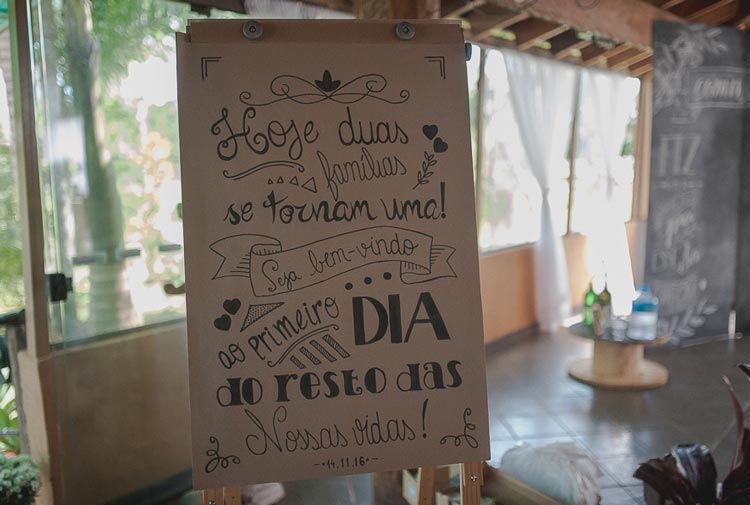 Hoje duas
famílias
se tornam uma!
Seja bem-vindo
ao primeiro DIA
do resto das
Nossas vidas!
14.11.16